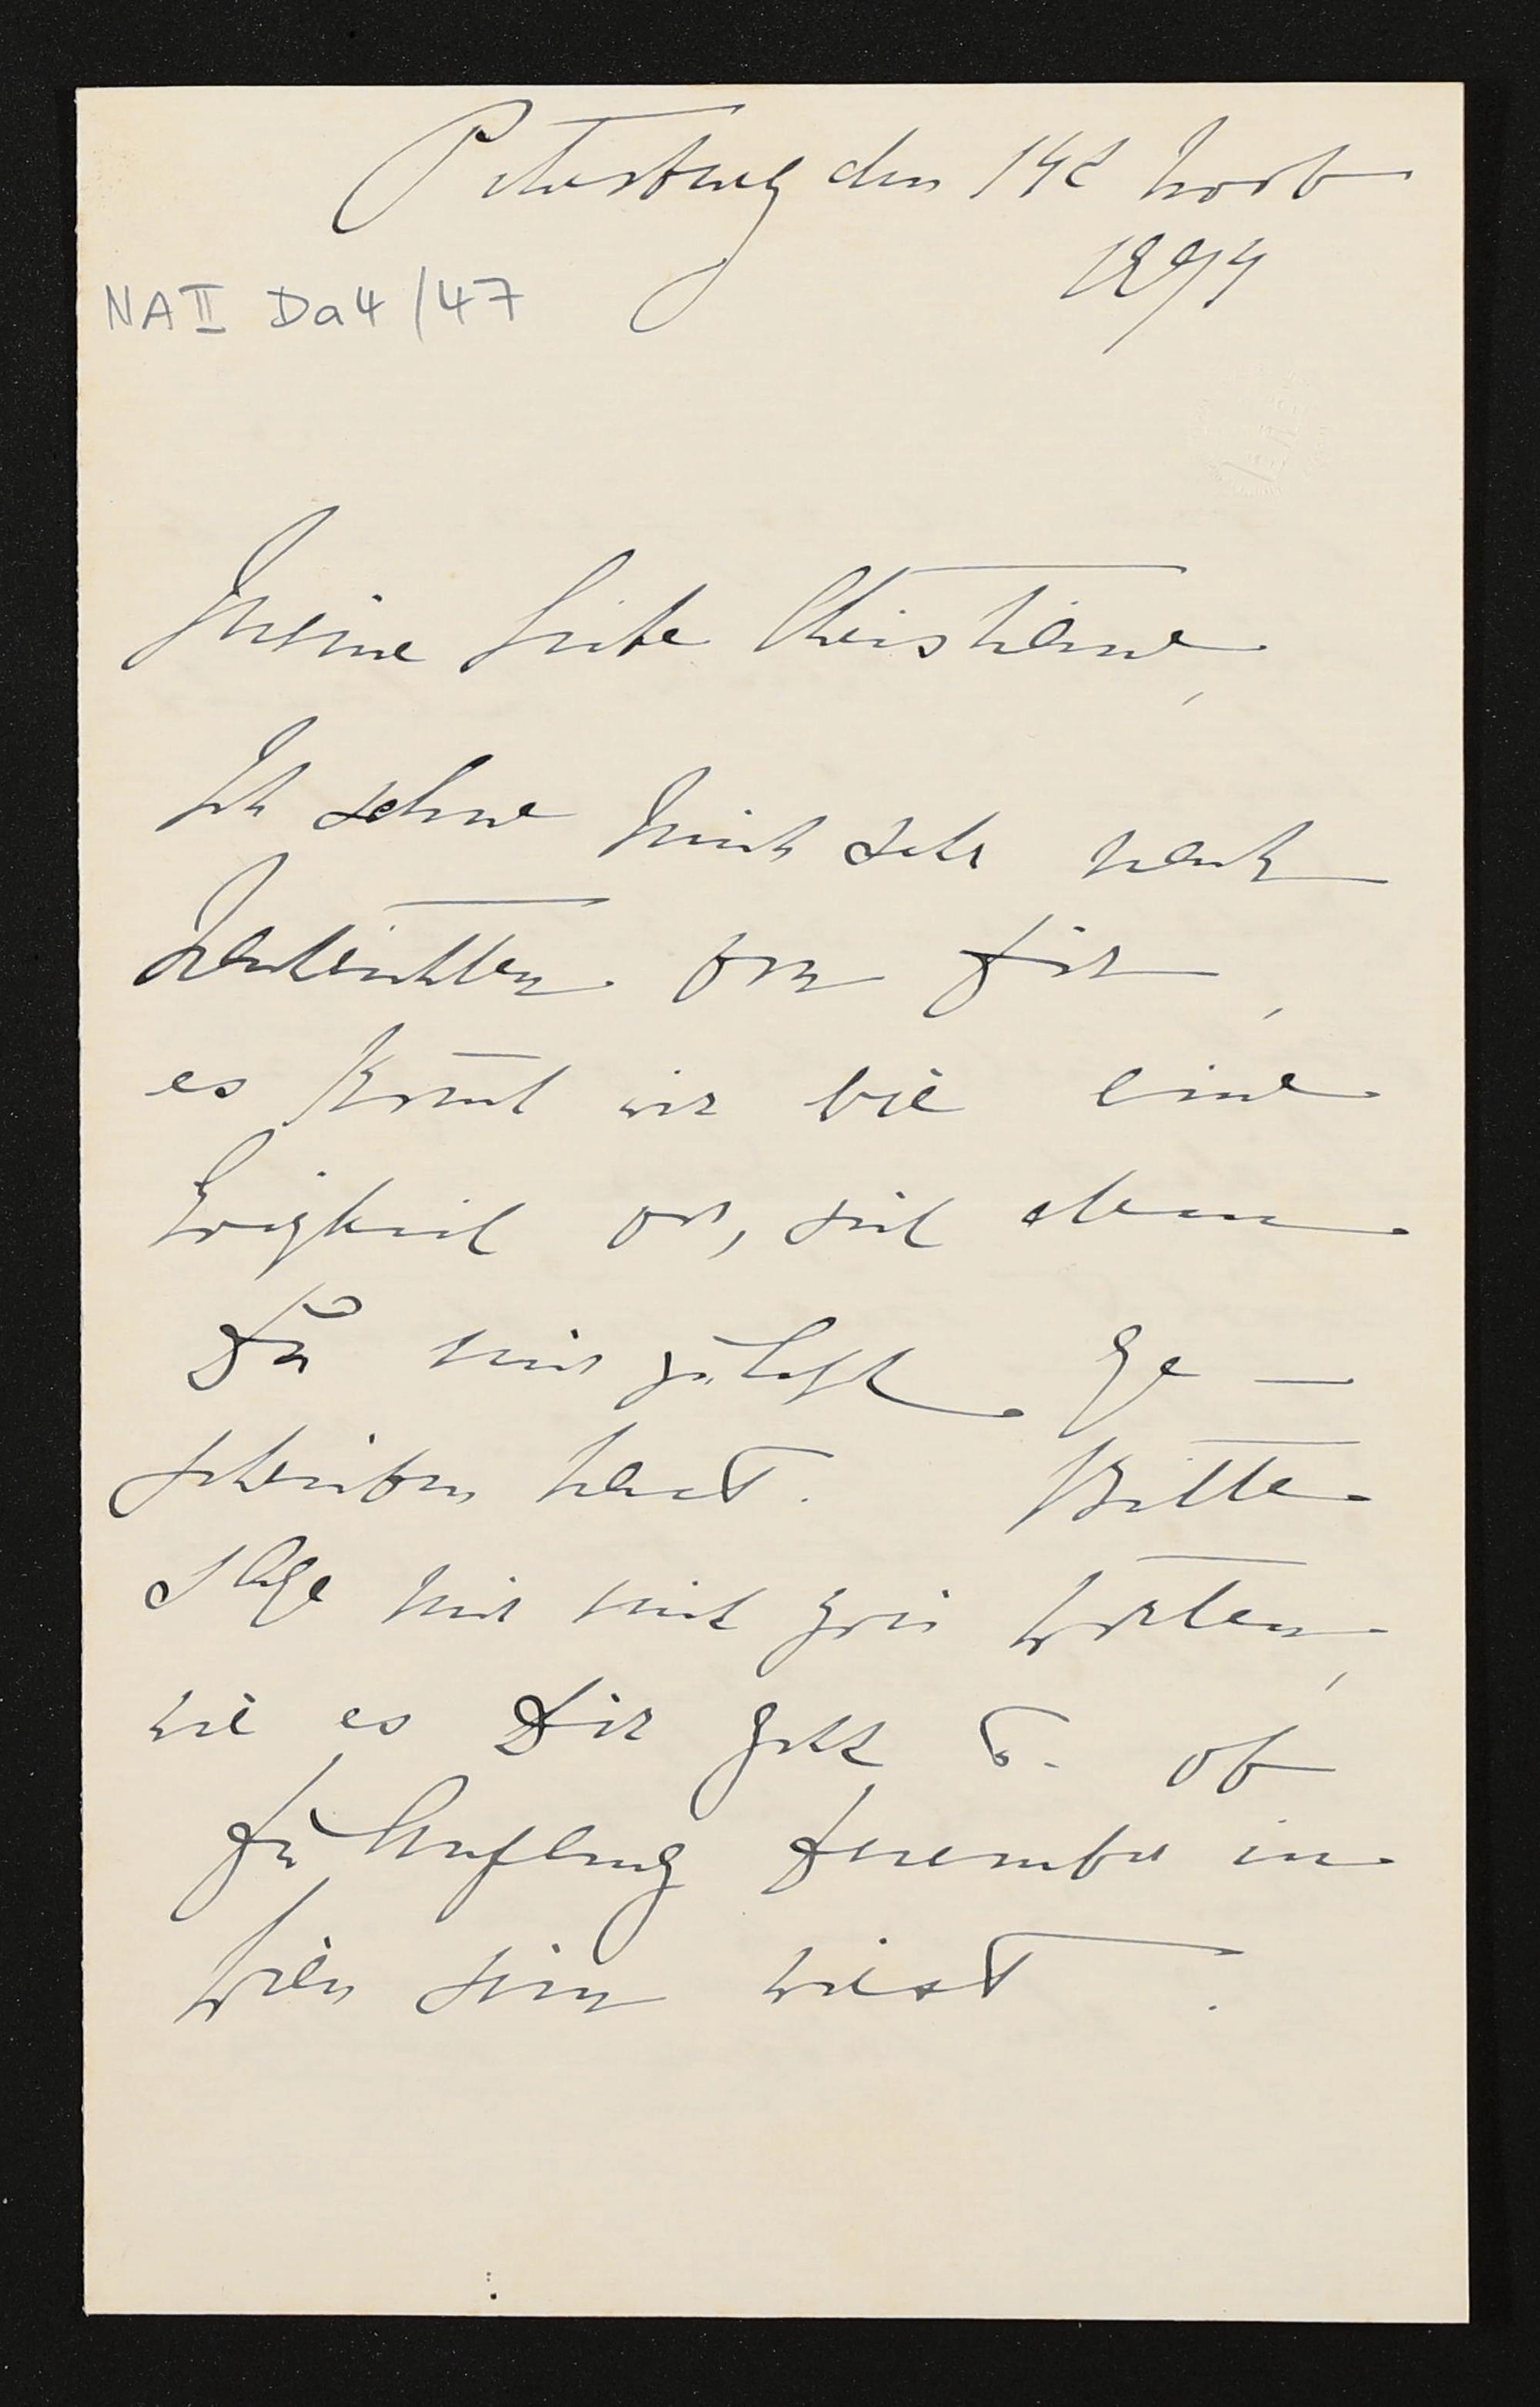 Petersburg den 14t Novb
1894
NA II Da4/47
Meine liebe Christiane,
Ich sehne mich sehr nach
Nachrichten von Dir,
es komt mir wie eine
Ewigkeit vor, seit
Du mir zuletzt ge-
schrieben hast. Bitte
sage mir mit zwei Worten,
wie es Dir geht u. ob
Du Anfang Dezember in
Wien sein wirst.